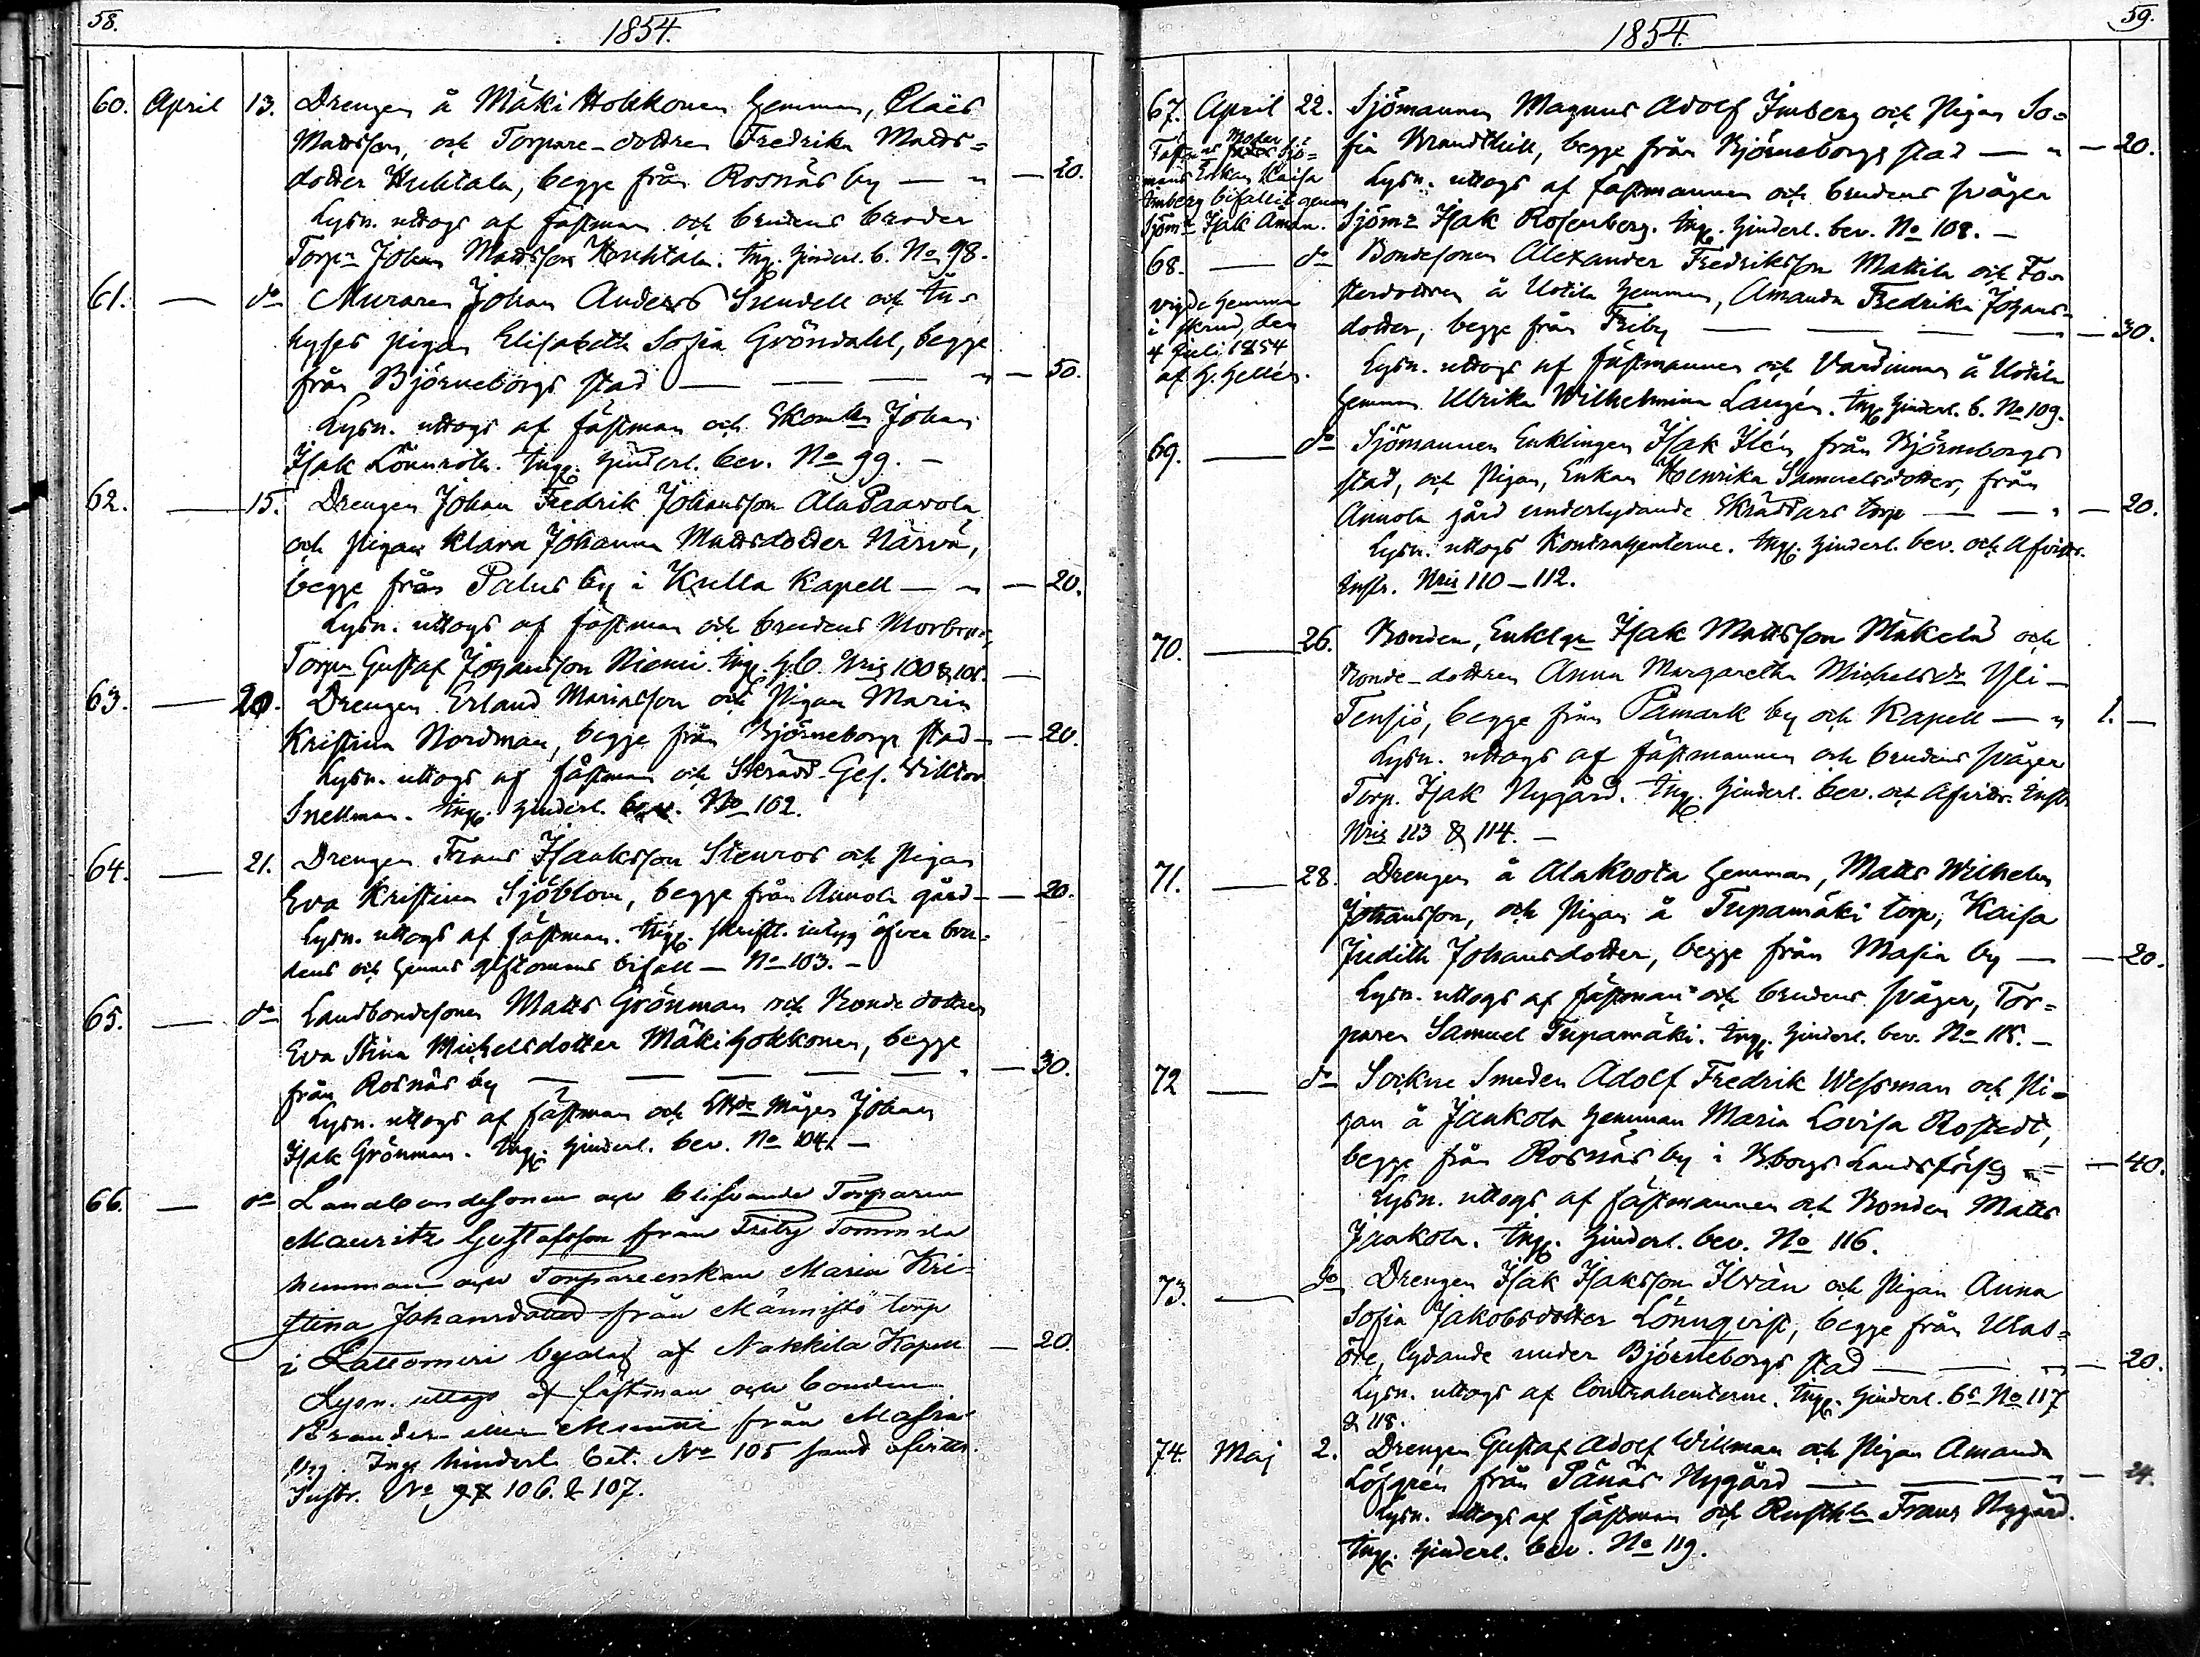 58.
1854.
60. April 13. Drengen å Mäki Hokkonen hemman, Claës
Mattsson, och Torpare-dottren Fredrika Matts=
dotter Huhtala, begge från Rosnäs by — " — 20.
Lysn. uttogs af fästman och brudens broder
Torpn Johan Mattsson Huhtala. Ing. hinderl. b. No 98.
61. — do Muraren Johan Anders Sundell och In-
hyses pigan Elisabeth Sofia Gröndahl, begge
från Björneborgs stad — — — " — 50.
Lysn. uttogs af fästman och Skom Johan
Isak Lönnroth. Ingg. hinderl. bev. No 99. —
62. — 15. Drengen Johan Fredrik Johansson AlaPaavola
och pigan Klara Johanna Mattsdotter Närvä,
begge från Palus by i Kulla Kapell — " — 20.
Lysn. uttogs af fästman och brudens Morbror,
Torpn Gustaf Johansson Niemi. Ing. h.b. Nris 100 & 101. —
63. — 20. Drengen Erland Mariasson och Pigan Maria
Kristina Nordman, begge från Björneborgs stad — — 20.
Lysn. uttogs af fästman och Skrädd. Ges. Viktor
Snellman. Ingg. hinderl. bev. No 102.
64. — 21. Drengen Frans Isaaksson Stenros och pigan
Eva Kristina Sjöblom, begge från Annola gård — — 20.
Lysn. uttogs af fästman. Ingg. skriftl. intyg öfver bru-
dens och hennes giftomans bifall — No 103. —
65. — do Landbondesonen Matts Grönman och Bonde dottren
Eva Stina Michelsdotter Mäkihokkonen, begge
från Rosnäs by — — — — " — 30.
Lysn. uttogs af fästman och måger Johan
Isak Grönman. Ingg. hinderl. bev. No 104. —
66. — do Landbondesonen och blifvande Torparen
Mauritz Gustafsson från Friby Tommila
hemman och Torpareenkan Maria Kri-
stina Johansdotter från Männistö torp
i Lattomeri byalag af Nakkila Kapell — 20.
Lysn. uttogs af fästman och bonden
Brander eller Muntti från Masia
by. Inge hinderl. bet. No 105 samt afvittr.
Instr. No 106. & 107.
59.
1854.
67. April 22. Sjömannen Magnus Adolf Imberg och pigan So=
fia Brandthill, begge från Björneborgs stad — " — 20.
Lysn. uttogs af fästmannen och brudens svåger
Sjömn Isak Rosenberg. Ingg. hinderl. bev. No 108. —
Moder Sjö=
mans Enkan Caisa
Imberg bifallit genom
Sjömn Isak Aman.
68. — do Bondesonen Alexander Fredriksson Mattila och Fo-
sterdottren å Uotila hemman, Amanda Fredrika Johans-
dotter, begge från Friby — — — — 30.
Lysn. uttogs af fästmannen och Värdinnan å Uotila
hemman Ulrika Wilhelmina Langén. Ingg. hinderl. b. No 109.
vigde hemma
i den
4 Juli 1854
af H. Hellén.
69. — do Sjömannen Enklingen Isak Ilén från Björneborgs
stad, och Pigan, Enkan Henrika Samuelsdotter, från
Annola gård underlydande Skräddars torp — — " — 20.
Lysn. uttogs Kontrahenterne. Ingg. hinderl. bev. och Afvittr.
Instr. Nris 110 — 112.
70. — 26. Bonden, Enklgn Isak Mattsson Mäkelä och
Bonde-dottren Anna Margaretha Michelsdr Yli-
Tensjö, begge från Påmark by och Kapell — " 1. —
Lysn. uttogs af fästmannen och brudens svåger
Torp. Isak Nygård. Ing. hinderl. bev. och Afvittr. Instr.
Nris 113 & 114. —
71. — 28. Drengen å AlaKoota hemman, Matts Wilhelm
Johansson, och pigan å Tupamäki torp, Kaisa
Judith Johansdotter, begge från Masia by — — 20.
Lysn. uttogs af fästman och brudens svåger, Tor=
paren Samuel Tupamäki. Ingg. hinderl. bev. No 115. —
72 — do Sockne Smeden Adolf Fredrik Wessman och Pi-
gan å Jaakola hemman Maria Lovisa Rostedt,
begge från Rosnäs by i Bborgs Landsförslg — 40.
Lysn. uttogs af fästmannen och Bonden Matts
Jaakola. Ingg. hinderl. bev. No 116.
73. — do Drengen Isak Isaksson Ilvän och Pigan Anna
Sofia Jakobsdotter Lönnqvist, begge från Ulas-
öre, lydande under Björneborgs stad — — " — 20.
Lysn. uttogs af Contrahenterne. Ingg. hinderl. bs No 117
& 118.
74. Maj 2. Drengen Gustaf Adolf Willman och pigan Amanda
Löfgrén från Pänäs Nygård — — " — 24.
Lysn. uttogs af fästman och Rusthln Frans Nygård.
Ingg. hinderl. bev. No 119.